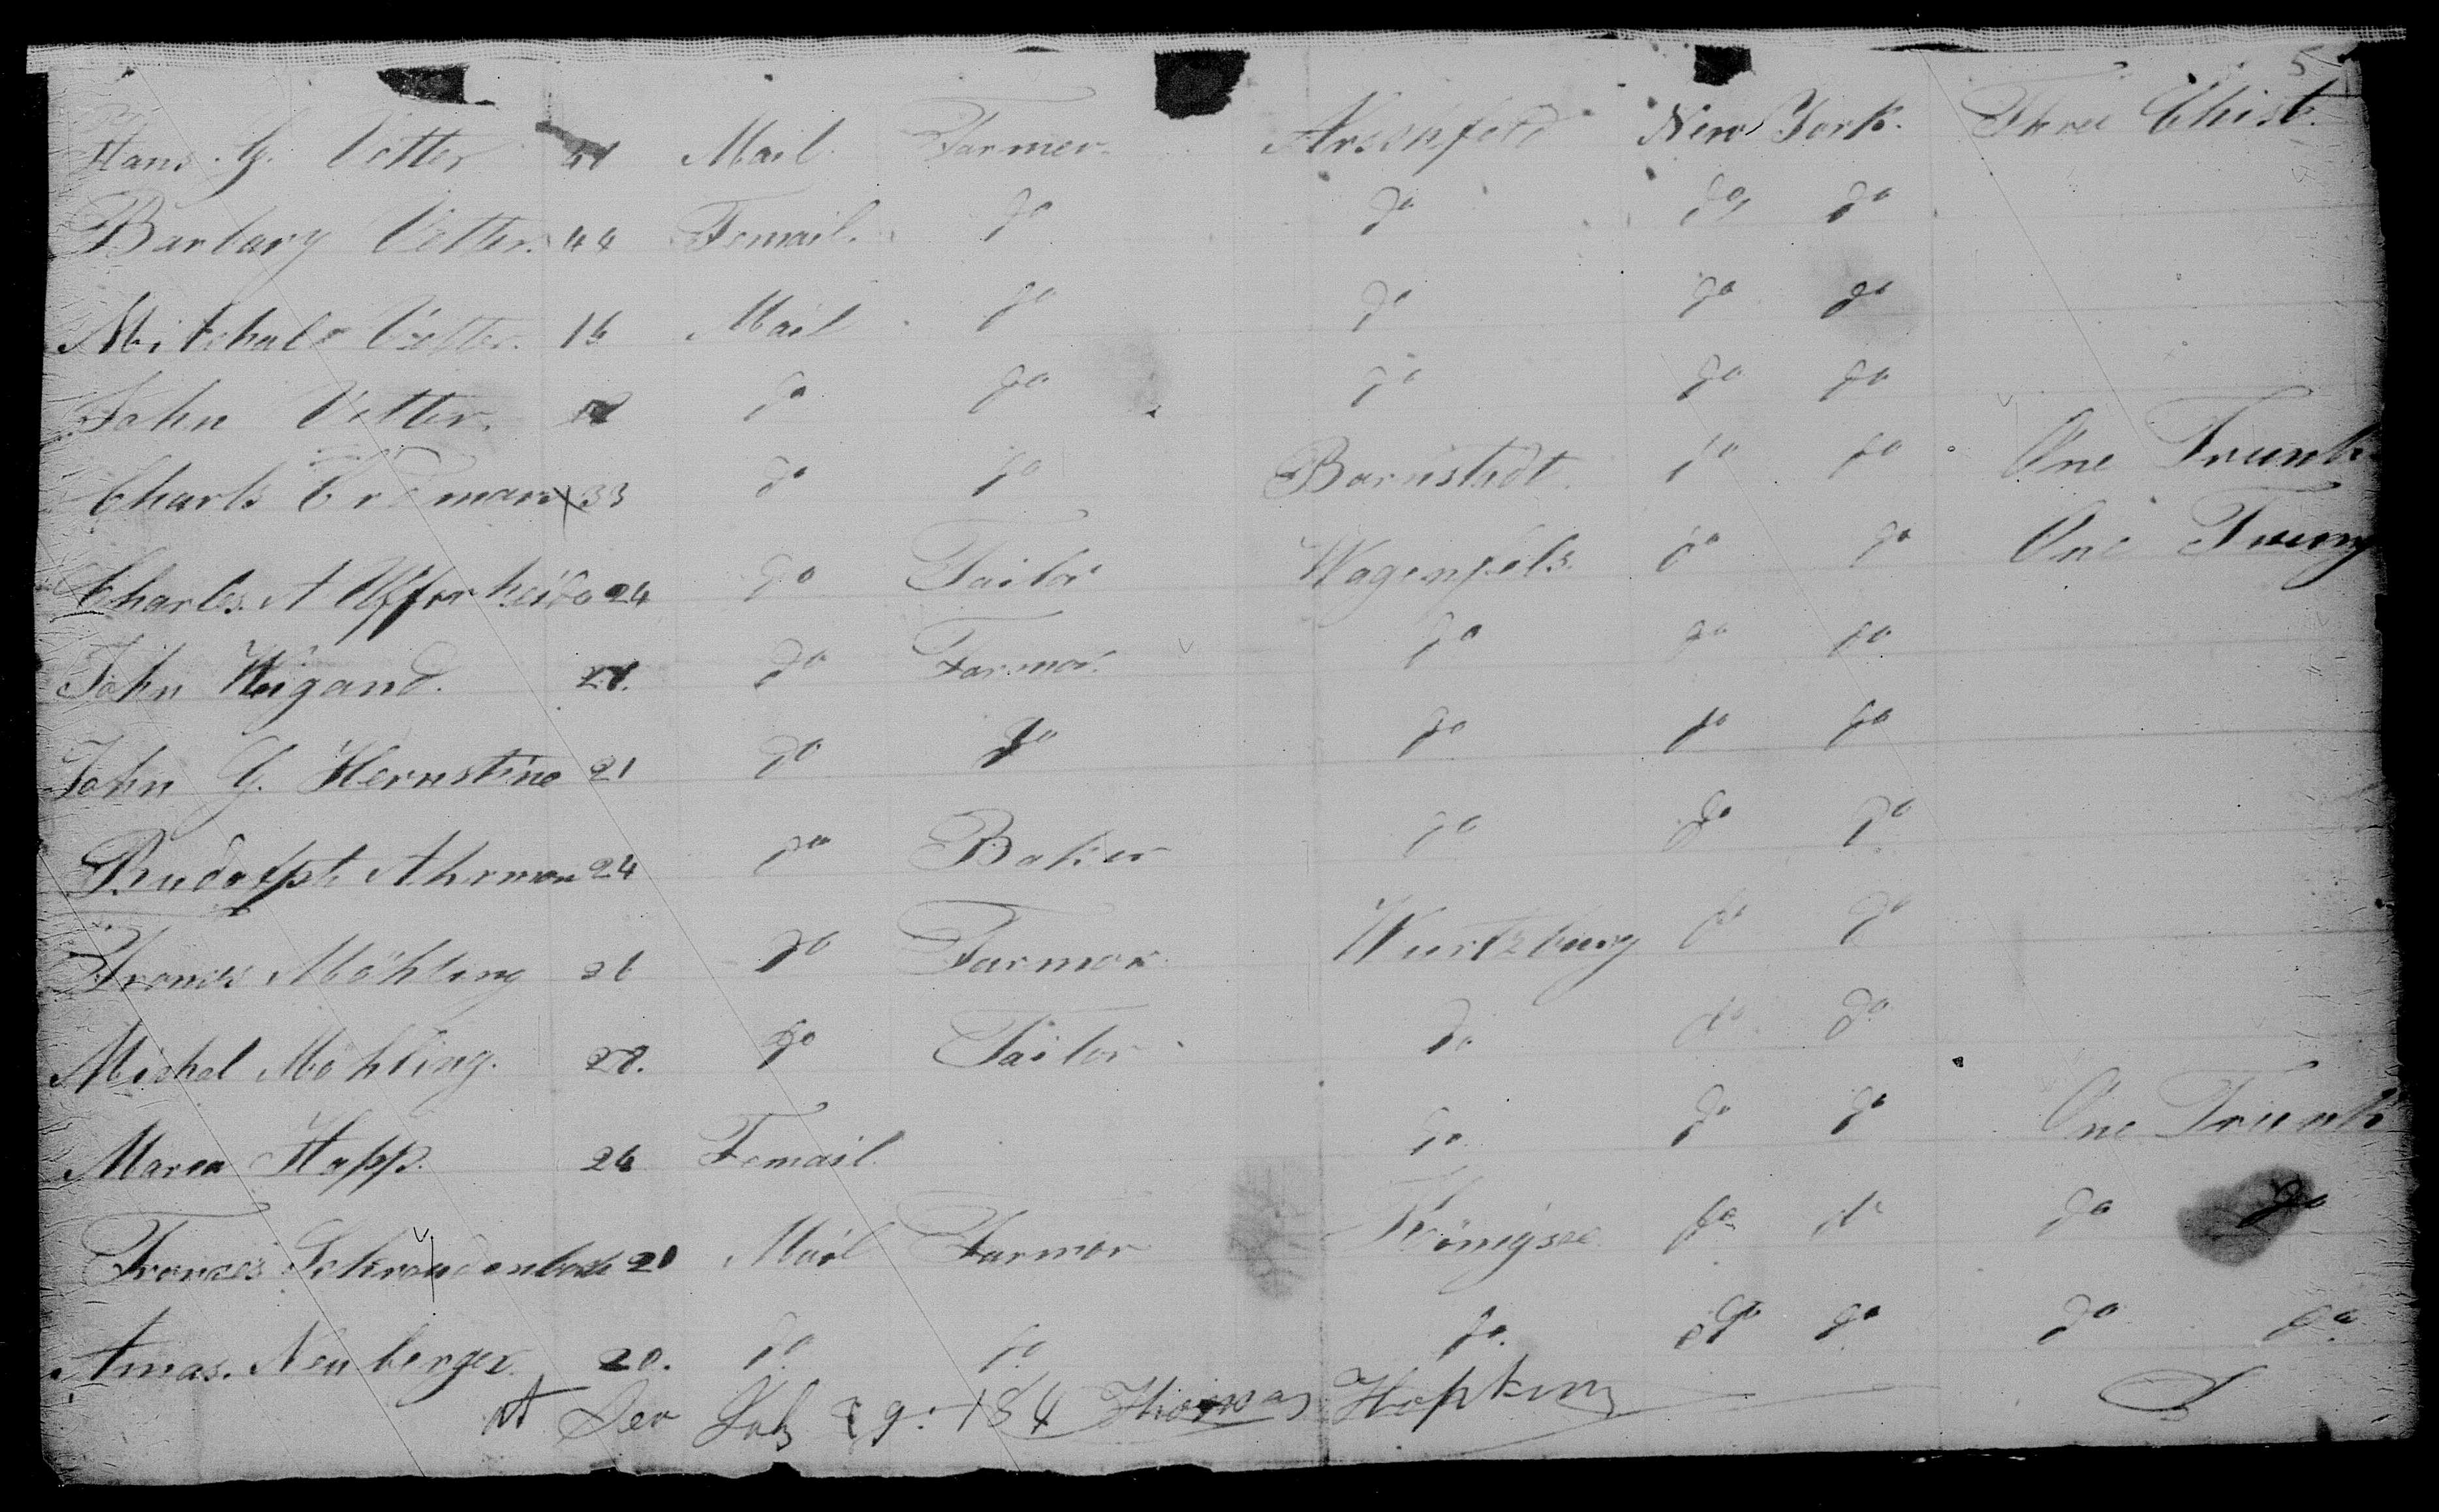 5
Hans. G. Vetter 41 Mail. Farmer. Arschfeld New York. Three Chist.
Barbary Vetter. 44 Femail. do do do do
Mitchale Vetter. 16 Mail do do do do
John Vetter. do do do do do
Charls Erdman 33 do do Barnstadt. do do One Trunk
Charles. A 24 do Tailor Wagenfels. do do One
John Weigand. 28. do Farmor. do do do
John G. Hernstine 21 do do do do do
Rudolph Ahrman 24 do Baker do do do
Frances Möhling 26 do Farmor. Wurtzburg do do
Michel Möhling. 28. do Tailor do do do
Marea Happ. 24 Femail. do do do One Trunk
Frances 20 Mail Farmor Königsee do do do do
Amas. Neuberger. 20. do do do. do do do do
Thomas Hopkins